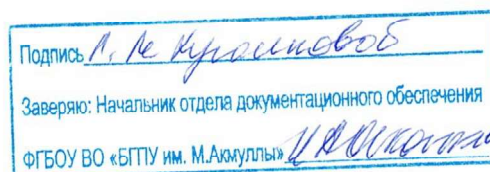 Подпись
Заверяю: Начальник отдела документационного обеспечения
ФГБОУ ВО «БГПУ им. М.Акмуллы»